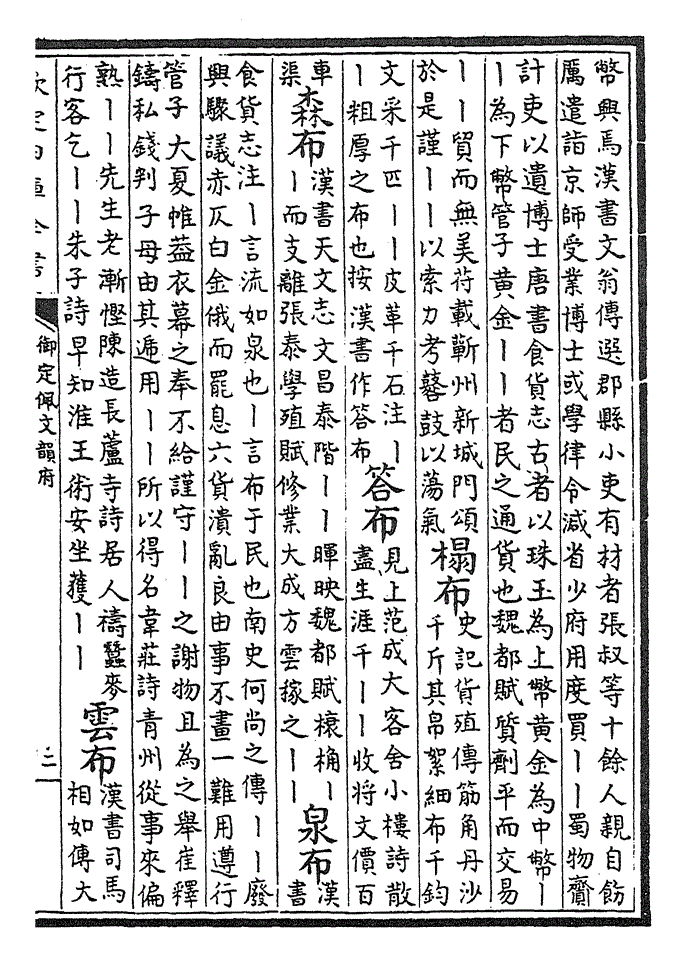 幣興焉漢書文翁傳選郡縣小吏有材者張叔等十餘人親自飭
厲遣詣京師受業博士或學律令減省少府用度買丨丨蜀物齎
計吏以遺博士唐書食貨志古者以珠玉為上幣黄金為中幣丨
丨為下幣管子黄金丨丨者民之通貨也魏都賦質劑平而交易
丨丨貿而無美苻載蘄州新城門頌
於是謹丨丨以索力考鼛鼓以蕩氣
榻布
史記貨殖傳筋角丹沙
千斤其帛絮細布千鈞
文采千匹丨丨皮革千石注丨
丨粗厚之布也按漢書作答布
答布
見上范成大客舍小樓詩散
盡生涯千丨丨收将文價百
車
渠
森布
漢書天文志文昌泰階丨丨暉映魏都賦榱桷丨
丨而支離張泰學殖賦修業大成方雲稼之丨丨
泉布
漢
書
食貨志注丨言流如泉也丨言布于民也南史何尚之傳丨丨廢
興驟議赤仄白金俄而罷息六貨潰亂良由事不畫一難用遵行
管子大夏帷葢衣幕之奉不給謹守丨丨之謝物且為之舉崔釋
鑄私錢判子母由其遞用丨丨所以得名韋莊詩青州從事來偏
熟丨丨先生老漸慳陳造長蘆寺詩居人禱蠶麥
行客乞丨丨朱子詩早知淮王術安坐獲丨丨
雲布
漢書司馬
相如傳大
欽定四庫全書
御定佩文韻府